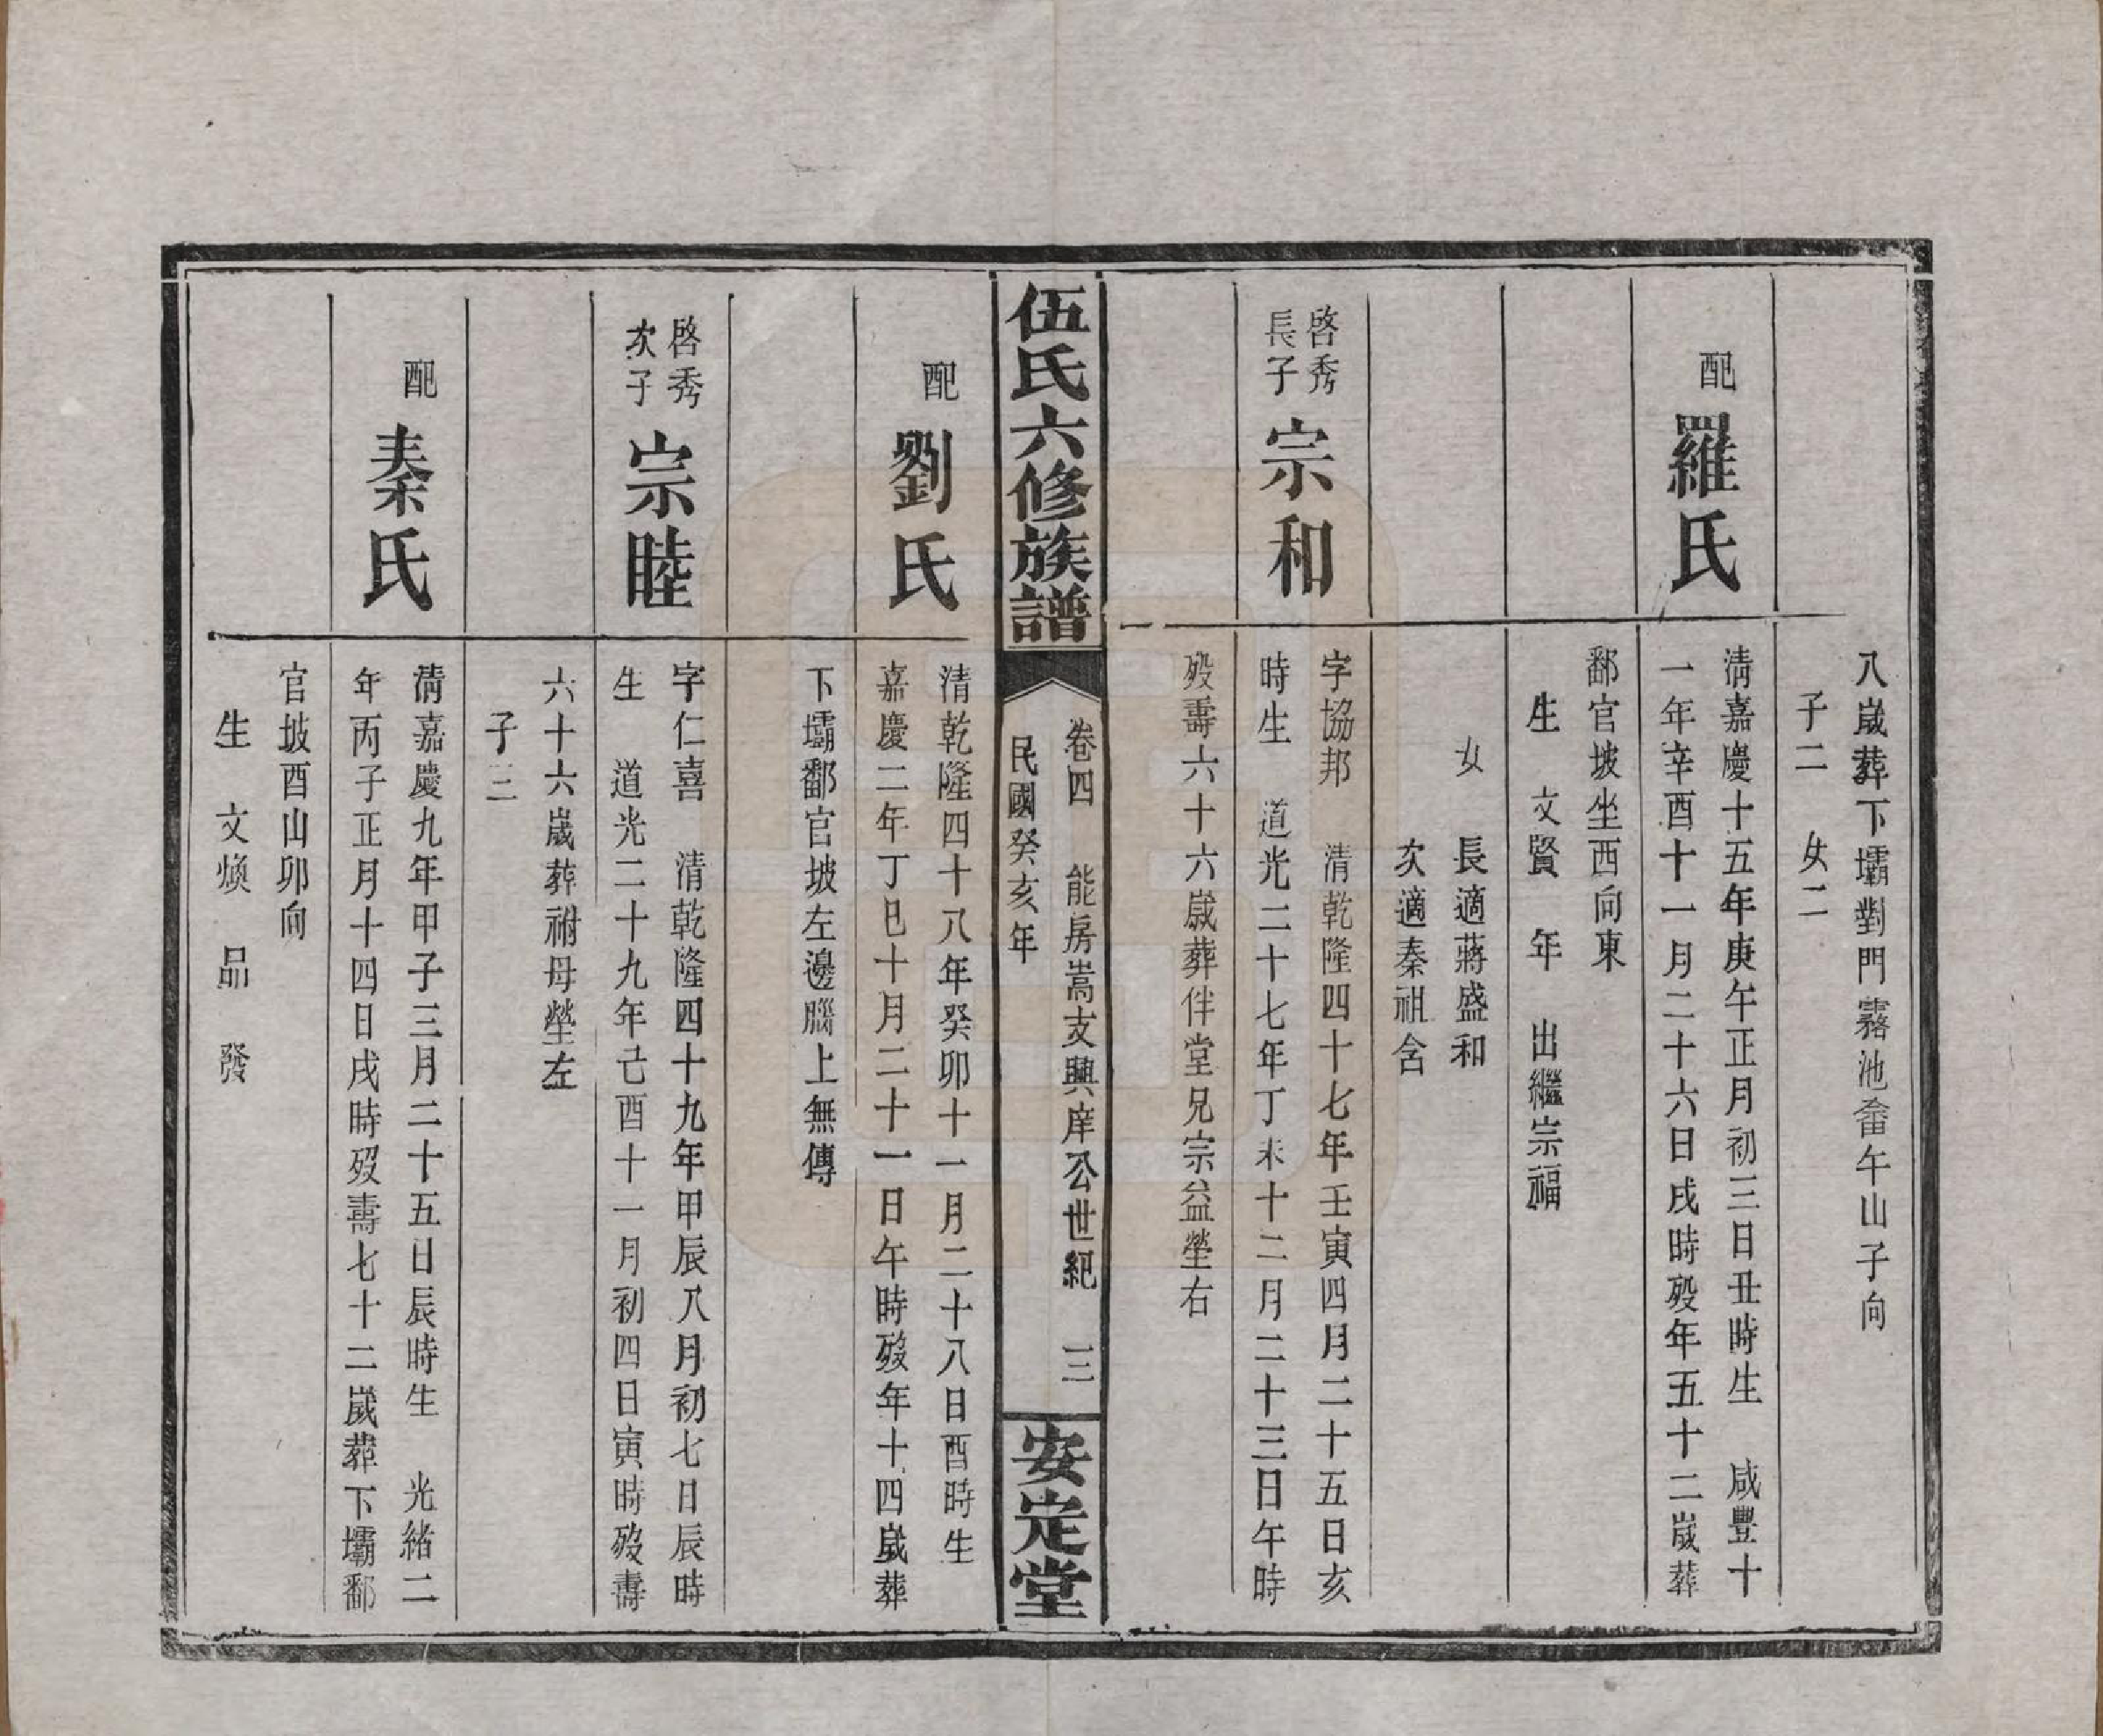 八歲葬下壩對門霧池畬午山子向
子二　女二
配　羅氏
清嘉慶十五年庚午正月初三日丑時生　咸豐十
一年辛酉十一月二十六日戌時歿年五十二歲葬
鄱官坡坐西向東
生　文賢　年　出繼宗福
女　長適蔣盛和
次適秦祖含
啓秀
長子　宗和
字協邦　清乾隆四十七年壬寅四月二十五日亥
時生　道光二十七年丁未十二月二十三日午時
歿壽六十六歲葬伴堂兄宗益塋右
伍氏六修族譜
卷四　能房嵩支興庠公世紀　三
民國癸亥年
安定堂
配　劉氏
清乾隆四十八年癸卯十一月二十八日酉時生
嘉慶二年丁巳十月二十一日午時歿年十四歲葬
下壩鄱官坡左邊腦上無傳
啓秀
次子　宗睦
字仁喜　清乾隆四十九年甲辰八月初七日辰時
生　道光二十九年己酉十一月初四日寅時歿壽
六十六歲葬祔母塋左
子三
配　秦氏
清嘉慶九年甲子三月二十五日辰時生　光緒二
年丙子正月十四日戌時歿壽七十二歲葬下壩鄱
官坡酉山卯向
生　文煥　品　發